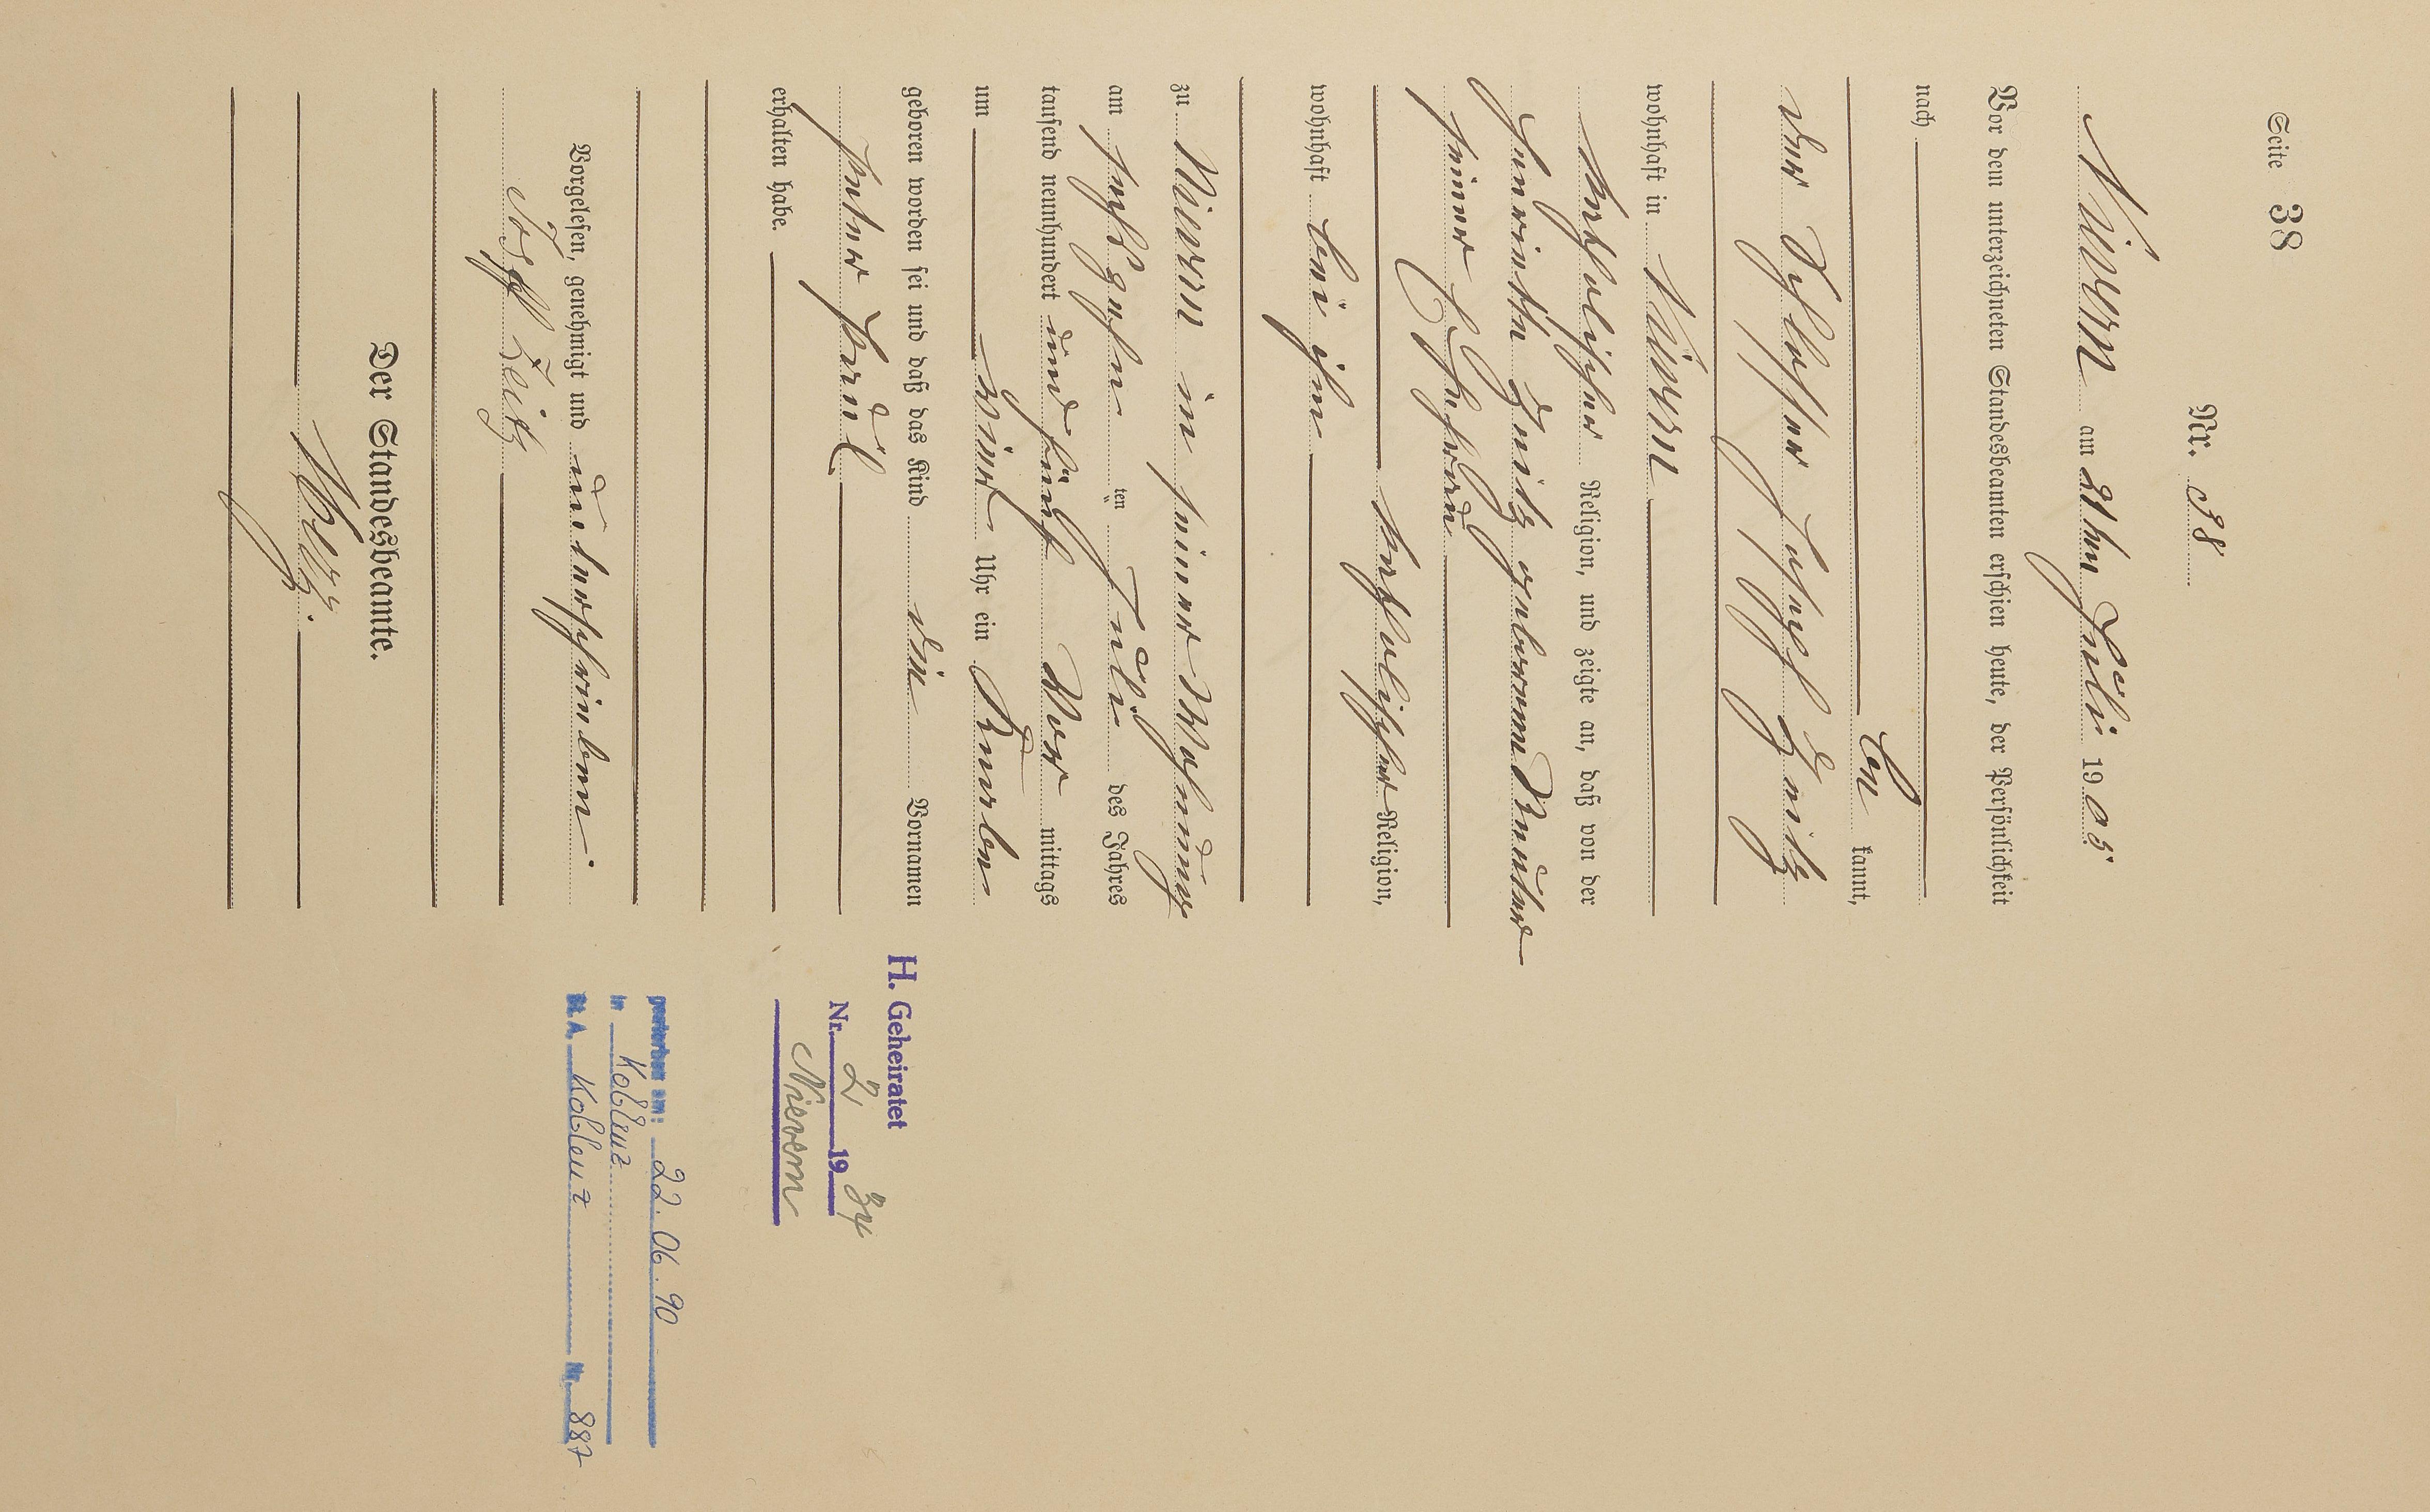 Seite 38
Nr. 38
Nievern am 21ten Juli 1905
Vor dem unterzeichneten Standesbeamten erschien heute, der Persönlichkeit
nach
be kannt,
der Schlosser Joseph Zeitz
wohnhaft in Nievern
katholischer Religion, und zeigte an, daß von der
Henriette Zeitz geborenen Reuter
seiner Ehefrau
katholischer Religion,
wohnhaft bei ihm
zu Nievern in seiner Wohnung
am sechszehn ten Juli des Jahres
tausend neunhundert und fünf Vor mittags
um Uhr ein Knabe
geboren worden sei und daß das Kind die Vornamen
Peter Paul
erhalten habe.
Vorgelesen, genehmigt und unterschrieben.
Josef Zeitz
Der Standesbeamte.
H. Geheiratet
Nr. 2 19 34
Nievern
gestorben am: 22.06.90
in Koblenz
St.A. Koblenz Nr. 887